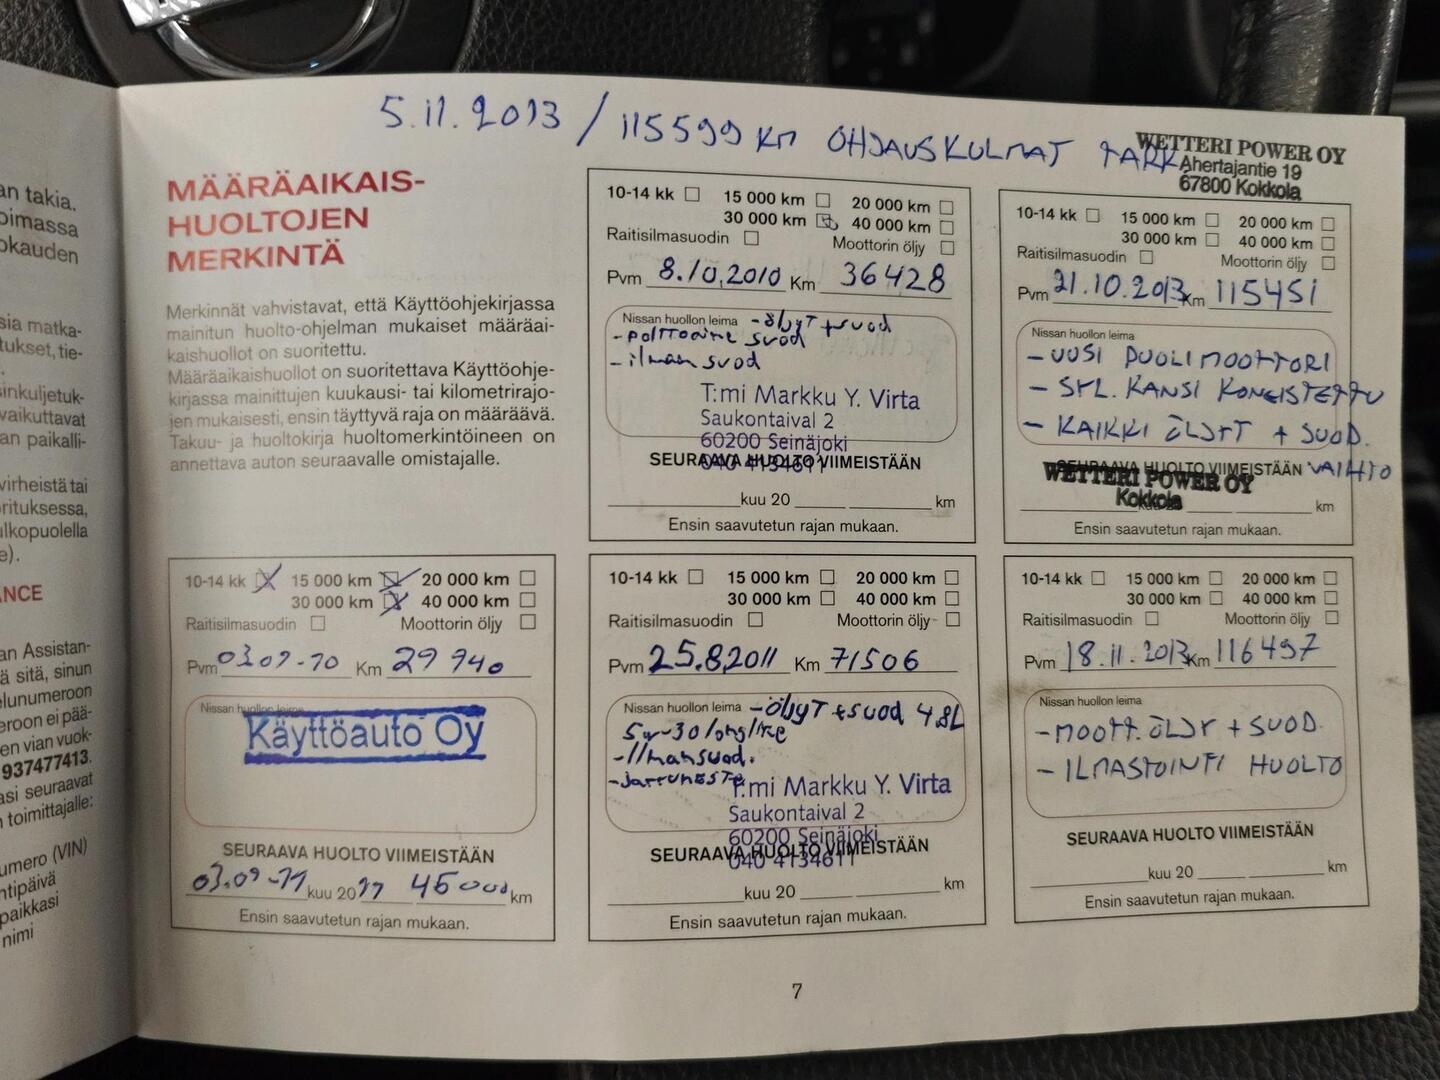 an takia.
oimassa
okauden
sia matka-
tukset, tie-
sinkuljetuk-
vaikuttavat
an paikalli-
virheistä tai
orituksessa,
ulkopuolella
e).
ANCE
an Assistan-
ä sitä, sinun
elunumeroon
eroon ei pää-
en vian vuok-
937477413.
asi seuraavat
n toimittajalle:
umero (VIN)
ntipäivä
paikkasi
nimi
5.11.2013 / 115599 km OHJAUSKULMAT TARK
WETTERI POWER OY
Ahertajantie 19
67800 Kokkola
MÄÄRÄAIKAIS-
HUOLTOJEN
MERKINTÄ
Merkinnät vahvistavat, että Käyttöohjekirjassa
mainitun huolto-ohjelman mukaiset määräai-
kaishuollot on suoritettu.
Määräaikaishuollot on suoritettava Käyttöohje-
kirjassa mainittujen kuukausi- tai kilometrirajo-
jen mukaisesti, ensin täyttyvä raja on määräävä.
Takuu- ja huoltokirja huoltomerkintöineen on
annettava auton seuraavalle omistajalle.
10-14 kk 15 000 km 20 000 km
30 000 km 40 000 km
Raitisilmasuodin Moottorin öljy
Pvm 8.10.2010 Km 36428
Nissan huollon leima - öljyt + suod
- polttoaine suod
- ilman suod
T:mi Markku Y. Virta
Saukontaival 2
60200 Seinäjoki
040 4134611
SEURAAVA HUOLTO VIIMEISTÄÄN
kuu 20 km
Ensin saavutetun rajan mukaan.
10-14 kk 15 000 km 20 000 km
30 000 km 40 000 km
Raitisilmasuodin Moottorin öljy
Pvm 21.10.2013 Km 115451
Nissan huollon leima
- UUSI PUOLIMOOTTORI
- SYL. KANSI KONEISTETTU
- KAIKKI ÖLJYT + SUOD.
VAIHTO
SEURAAVA HUOLTO VIIMEISTÄÄN
WETTERI POWER OY
Kokkola
kuu 20 km
Ensin saavutetun rajan mukaan.
10-14 kk 15 000 km 20 000 km
30 000 km 40 000 km
Raitisilmasuodin Moottorin öljy
Pvm 03.09-10 Km 29 940
Nissan huollon leima
Käyttöauto Oy
SEURAAVA HUOLTO VIIMEISTÄÄN
03.09-11 kuu 2011 45000 km
Ensin saavutetun rajan mukaan.
10-14 kk 15 000 km 20 000 km
30 000 km 40 000 km
Raitisilmasuodin Moottorin öljy
Pvm 25.8.2011 Km 71506
Nissan huollon leima - öljyT + suod 4.8L
5w-30 longlife
- Ilmansuod.
- jarruneste
T:mi Markku Y. Virta
Saukontaival 2
60200 Seinäjoki
040 4134611
SEURAAVA HUOLTO VIIMEISTÄÄN
kuu 20 km
Ensin saavutetun rajan mukaan.
10-14 kk 15 000 km 20 000 km
30 000 km 40 000 km
Raitisilmasuodin Moottorin öljy
Pvm 18.11.2013 Km 116497
Nissan huollon leima
- MOOTT. ÖLJY + SUOD.
- ILMASTOINTI HUOLTO
SEURAAVA HUOLTO VIIMEISTÄÄN
kuu 20 km
Ensin saavutetun rajan mukaan.
7